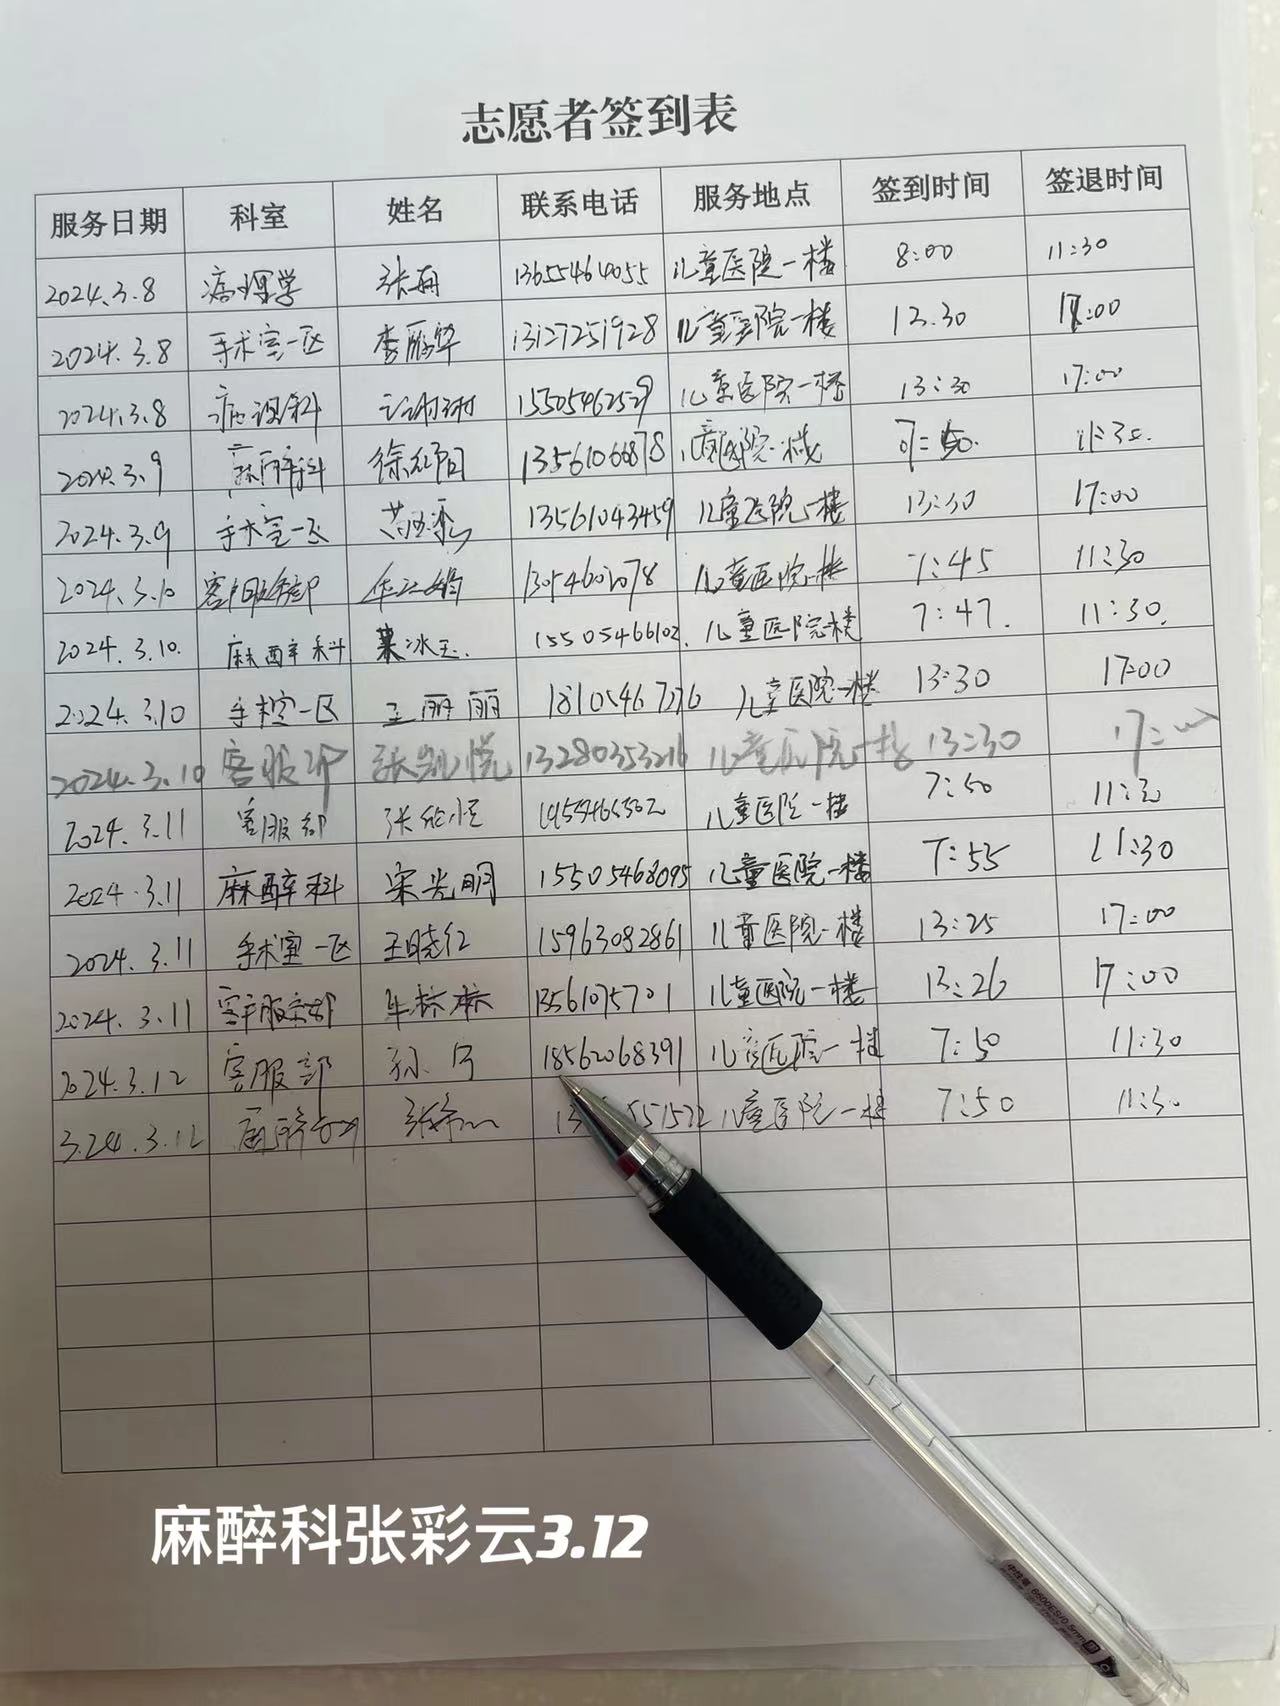 志愿者签到表
服务日期 科室 姓名 联系电话 服务地点 签到时间 签退时间
2024.3.8 病理学 张 13655464055 儿童医院一楼 8:00 11:30
2024.3.8 手术室一区 李 华 13127251928 儿童医院一楼 13.30 17:00
2024.3.8 科 15505462529 儿童医院一楼 13:30 17:00
2024.3.9 麻醉科 徐 阳 13561066878 儿童医院一楼 11:30.
2024.3.9 手术室一区 13561043459 儿童医院一楼 13:30 17:00
2024.3.10 客服部 儿童医院一楼 7:45 11:30
2024.3.10. 麻醉科 冰玉. 15505466102. 儿童医院一楼 7:47. 11:30.
2024.3.10 手术室一区 王丽丽 儿童医院一楼 13:30 17:00
2024.3.10 客服部 张凯悦 13280353216 儿童医院一楼 13:30 17:00
2024.3.11 客服部 张 儿童医院一楼 7:50 11:30
2024.3.11 麻醉科 宋光明 15505468095 儿童医院一楼 7:55 11:30
2024.3.11 手术室一区 王晓红 15963082861 儿童医院一楼 13:25 17:00
2024.3.11 客服部 牛 13561075701 儿童医院一楼 13:26 17:00
2024.3.12 客服部 孙 18562068391 儿童医院一楼 7:50 11:30
3.24.3.12 麻醉科 张 儿童医院一楼 7:50 11:30
麻醉科张彩云3.12